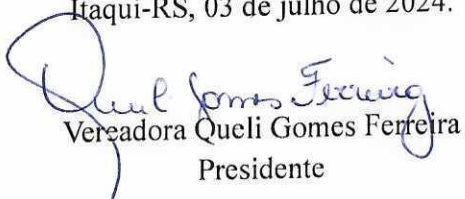 Itaqui-RS, 03 de julho de 2024.
Queli Gomes Ferreira
Vereadora Queli Gomes Ferreira
Presidente